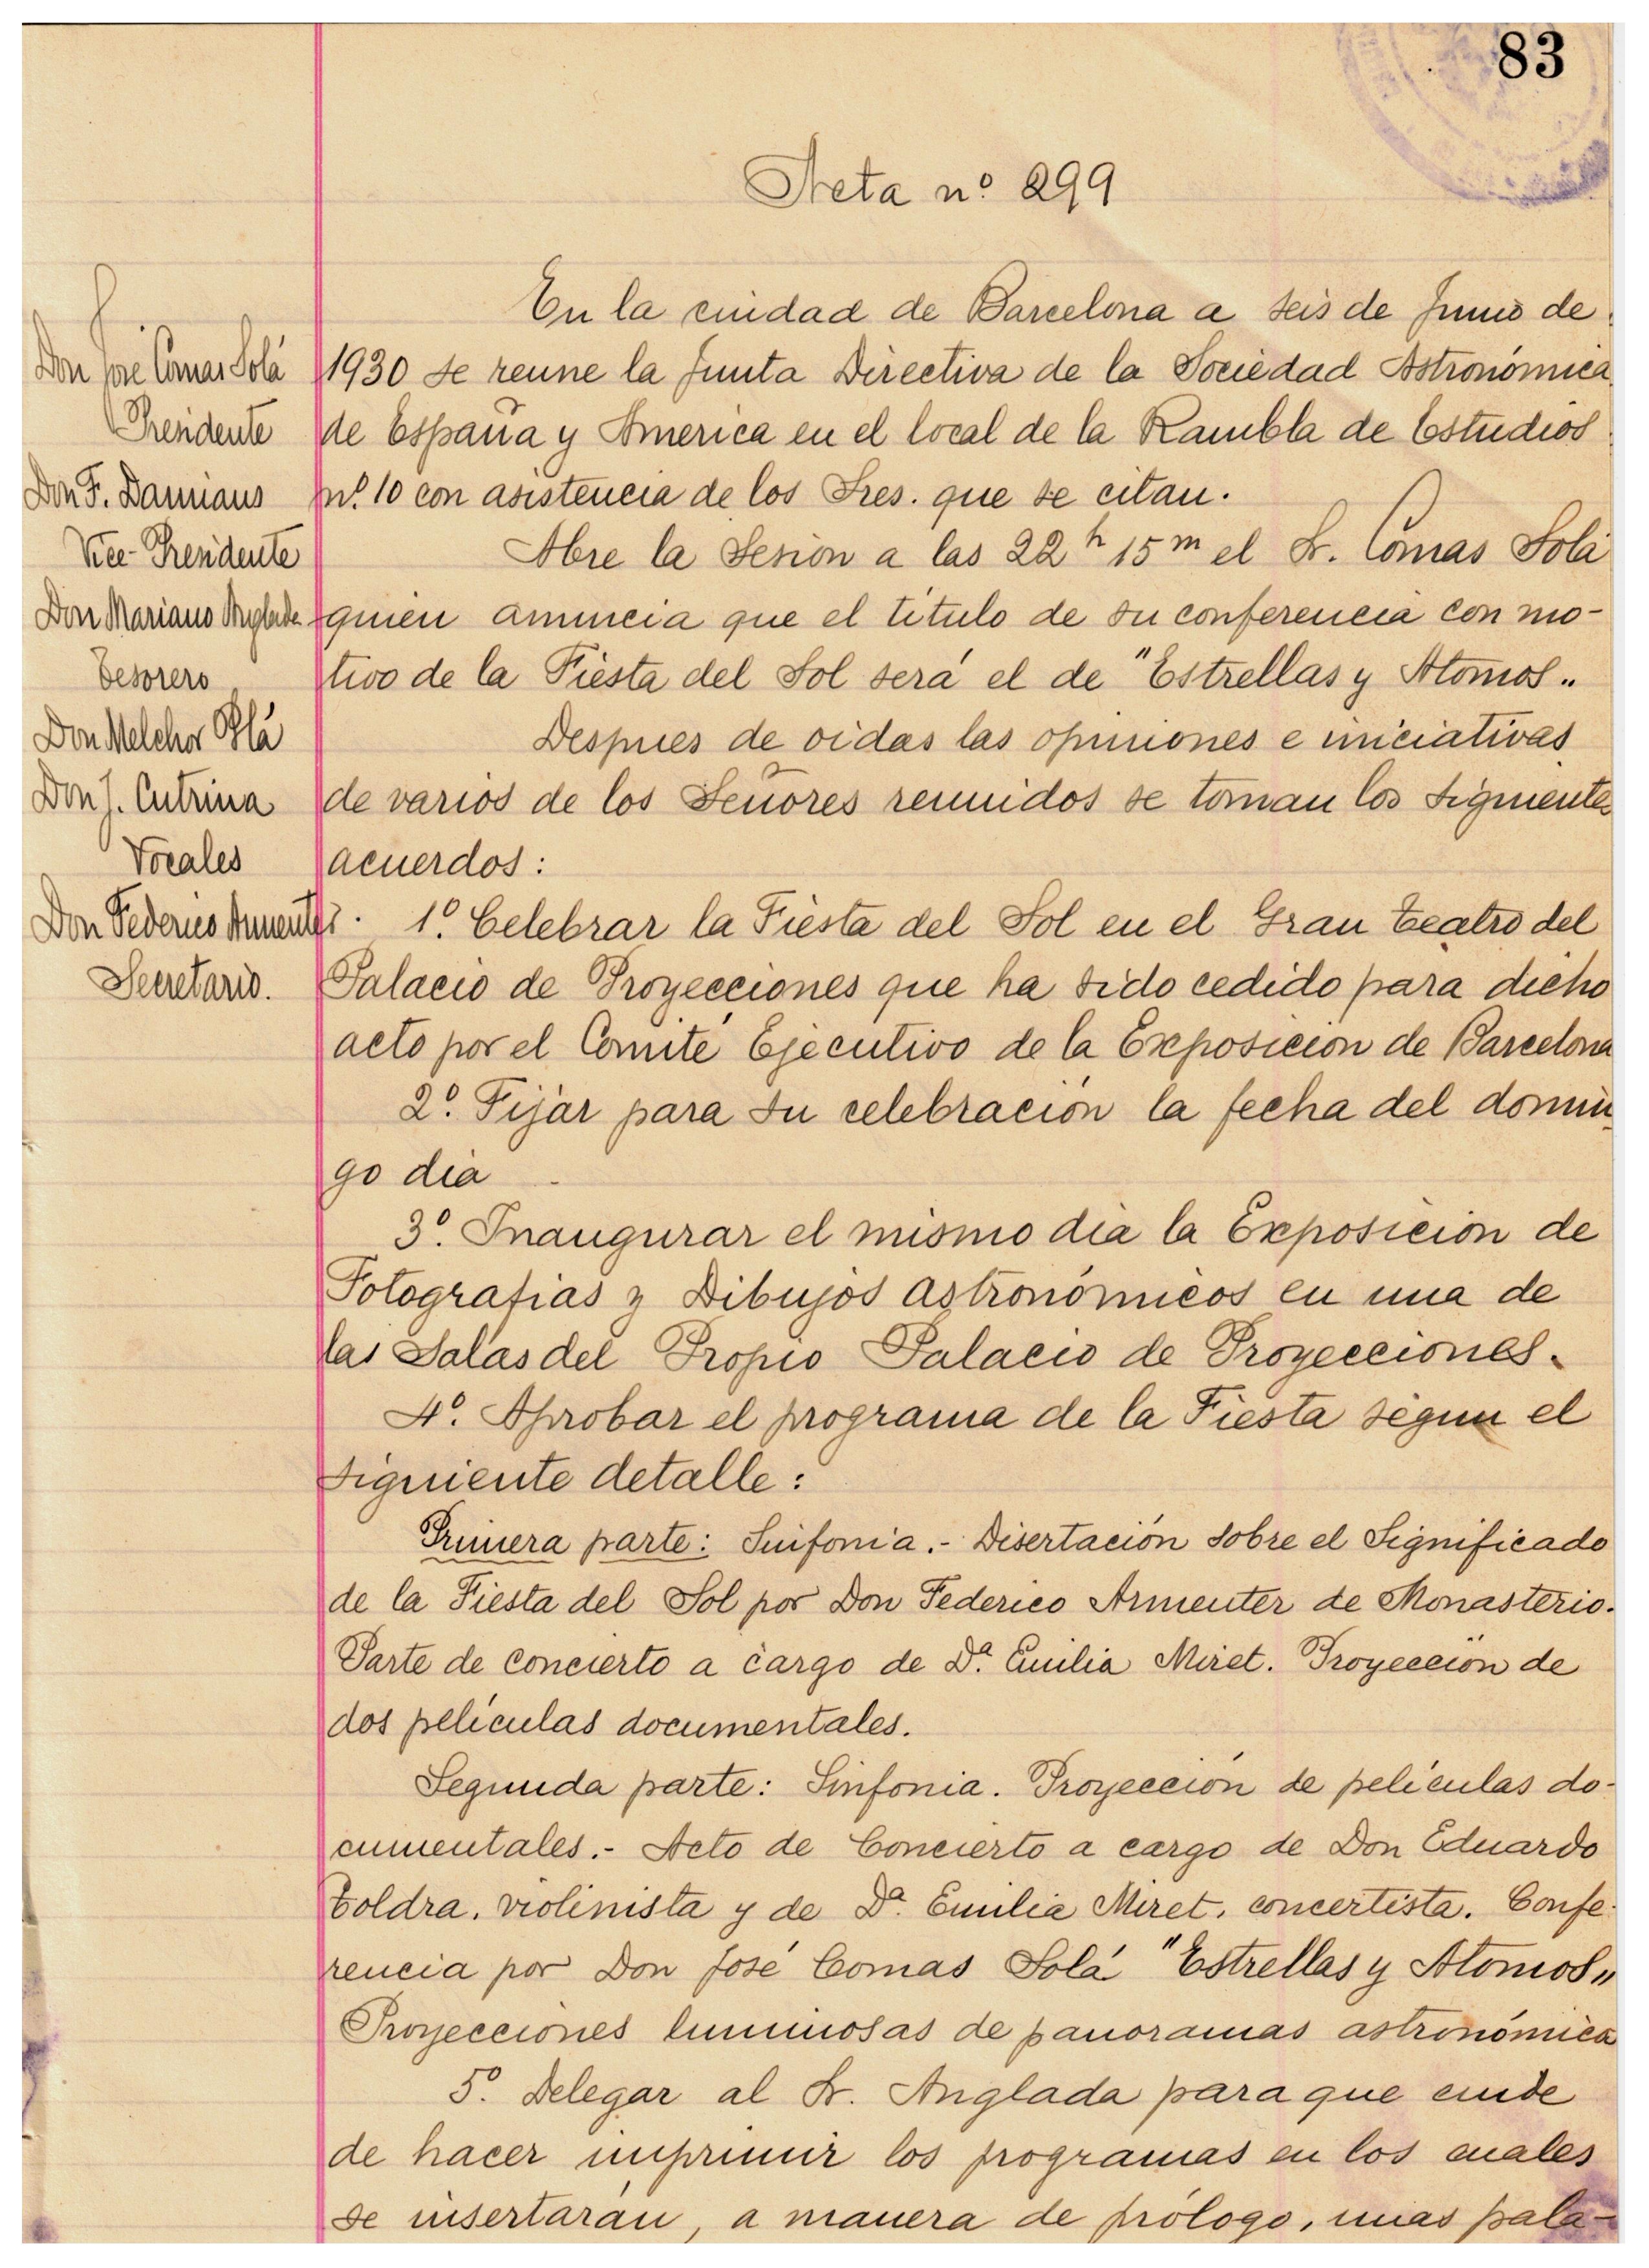 83
Acta nº 299
En la ciudad de Barcelona a seis de Junio de
1930 se reune la Junta Directiva de la Sociedad Astronómica
de España y America en el local de la Rambla de Estudios
nº 10 con asistencia de los Sres. que se citan.
Abre la Sesion a las 22 h 15 m el Sr. Comas Solá
quien anuncia que el titulo de su conferencia con mo-
tivo de la Fiesta del Sol será el de "Estrellas y Atomos„
Despues de oidas las opiniones e iniciativas
de varios de los Señores reunidos se toman los siguientes
acuerdos:
1º. Celebrar la Fiesta del Sol en el Gran Teatro del
Palacio de Proyecciones que ha sido cedido para dicho
acto por el Comité Ejecutivo de la Exposición de Barcelona
2º. Fijar para su celebración la fecha del domin
go dia
3º. Inaugurar el mismo dia la Exposición de
Fotografias y Dibujos astronómicos en una de
las Salas del Propio Palacio de Proyecciones.
4º. Aprobar el programa de la Fiesta segun el
siguiente detalle:
Primera parte: Sinfonia.- Disertación sobre el Significado
de la Fiesta del Sol por Don Federico Armenter de Monasterio.
Parte de concierto a cargo de Dª. Emilia Miret. Proyección de
dos películas documentales.
Segunda parte: Sinfonia. Proyección de películas do-
cumentales.- Acto de Concierto a cargo de Don Eduardo
Toldra, violinista y de Dª. Emilia Miret, concertista. Confe-
rencia por Don José Comas Solá "Estrellas y Atomos„
Proyecciones luminosas de panoramas astronómica
5º. Delegar al Sr. Anglada para que cuide
de hacer imprimir los programas en los cuales
se insertarán, a manera de prólogo, unas pala-
Don José Comas Solá
Presidente
Don F. Damians
Vice-Presidente
Don Mariano Anglada
Tesorero
Don Melchor Plá
Don J. Cutrina
Vocales
Don Federico Armenter
Secretario.